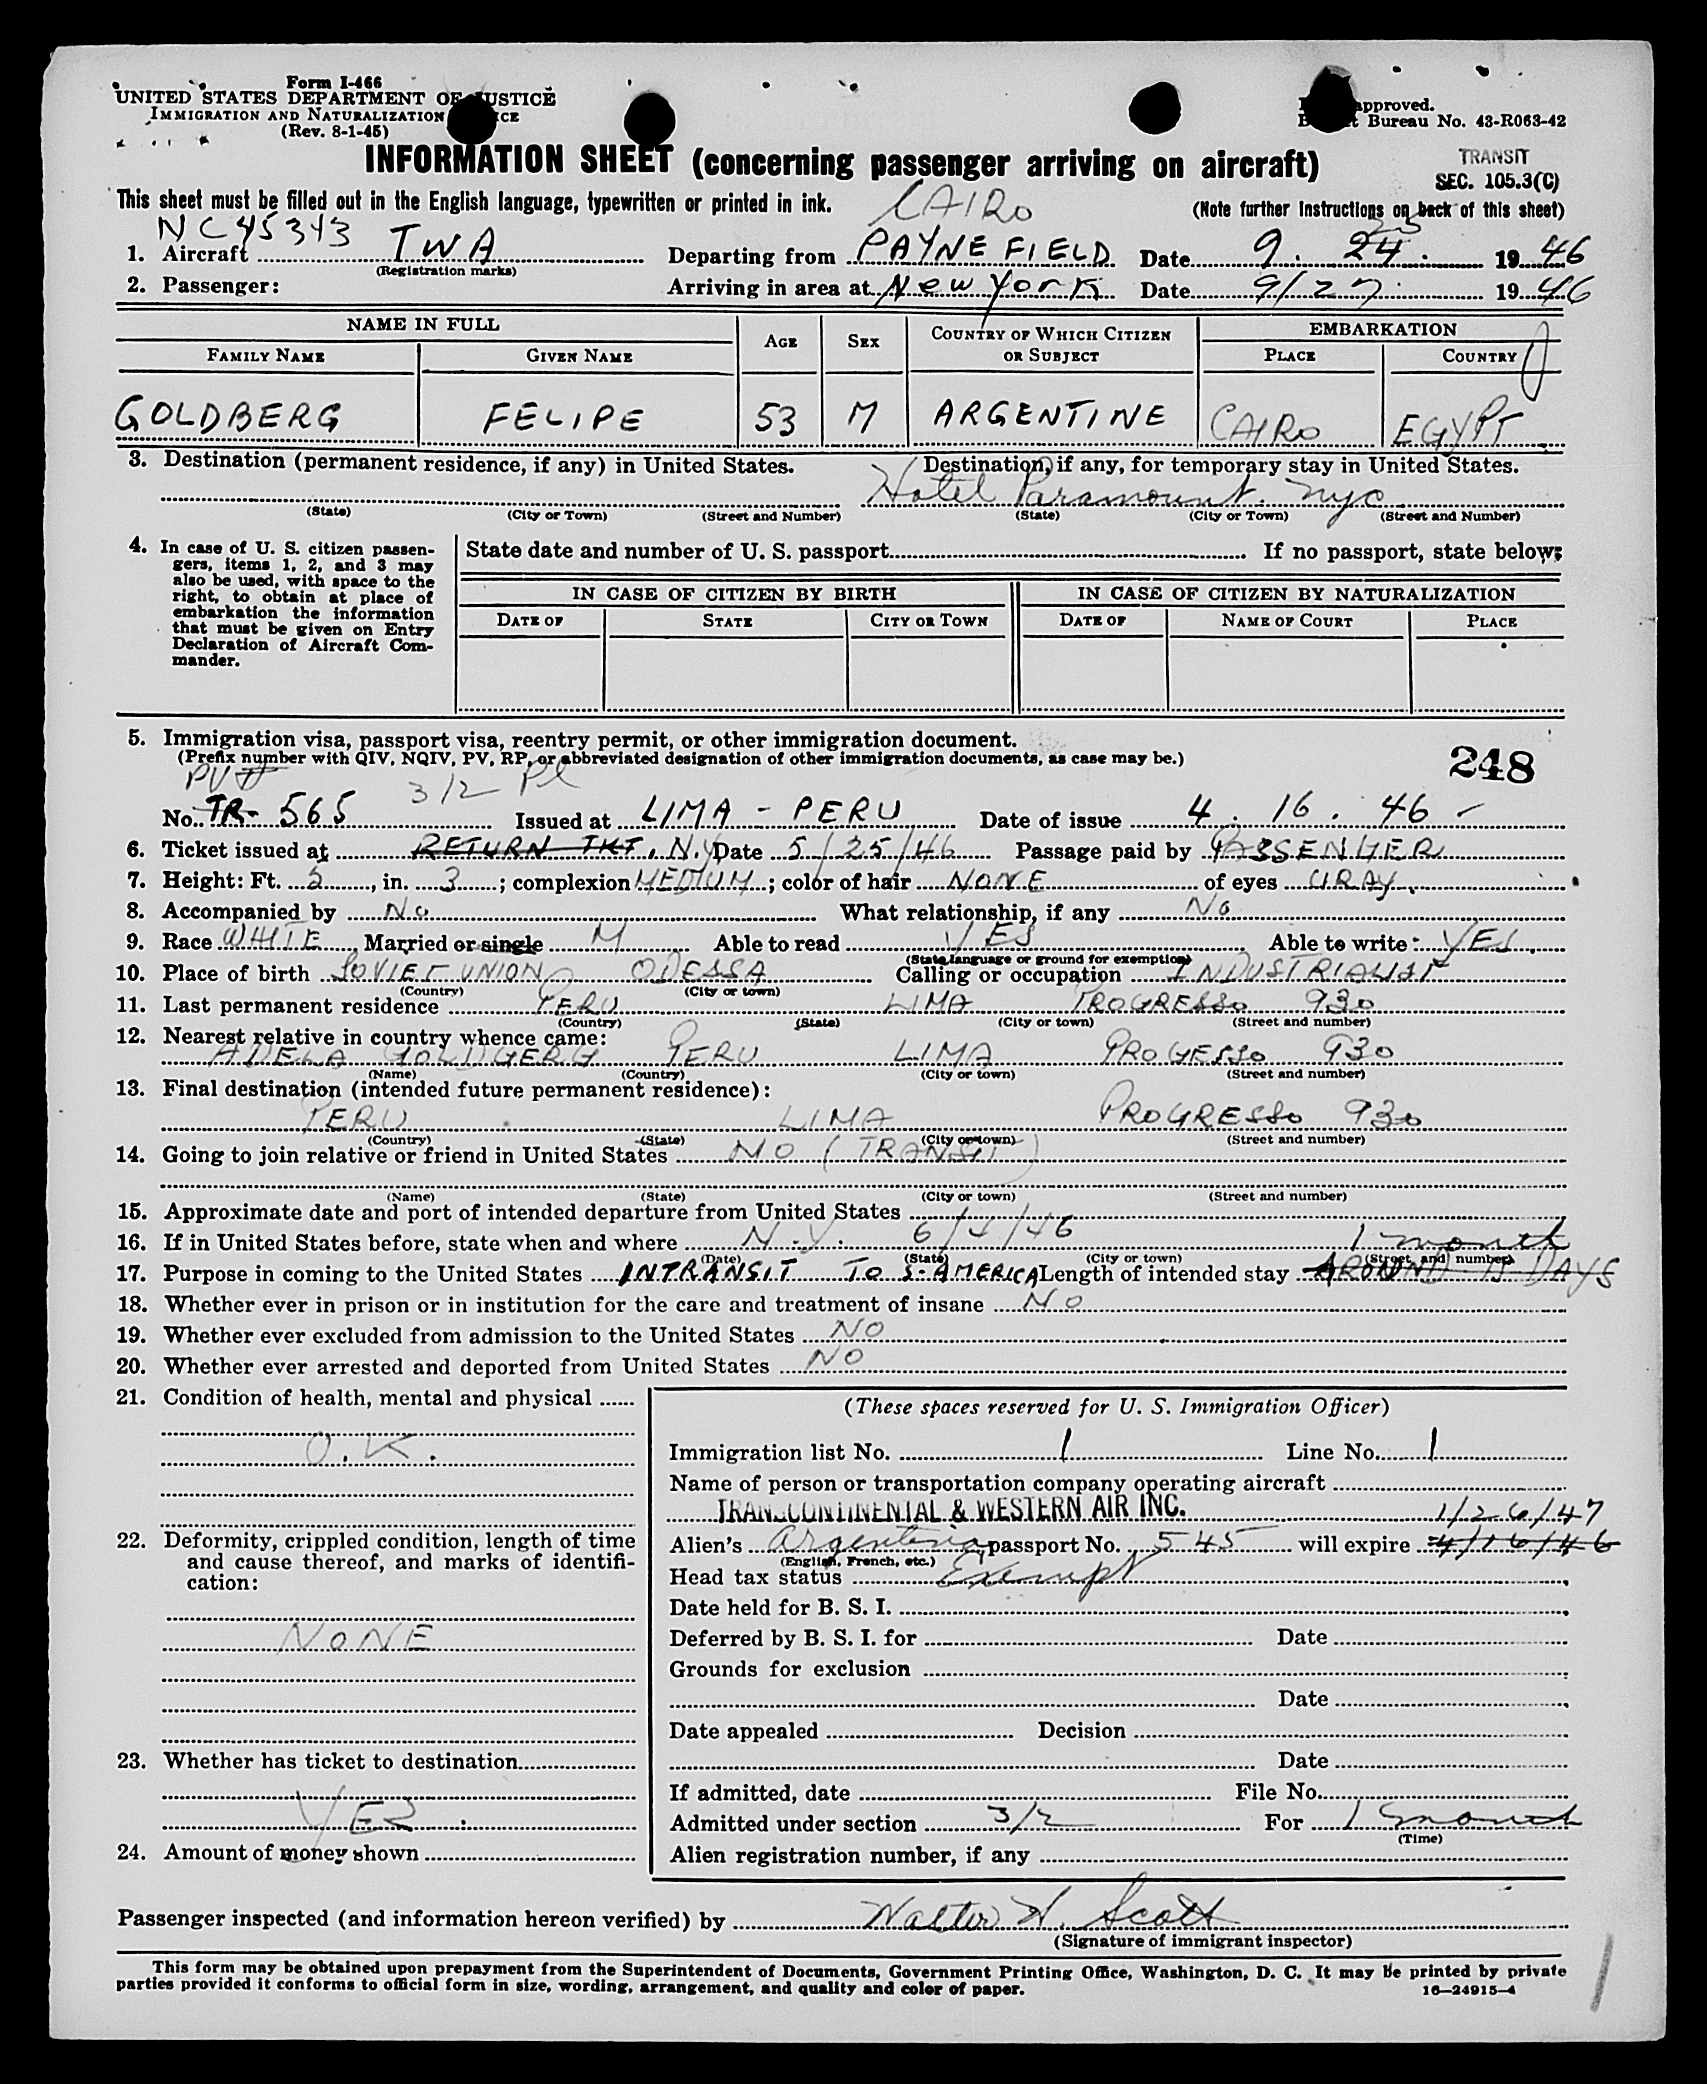 Form I-466
UNITED STATES DEPARTMENT OF JUSTICE
IMMIGRATION AND NATURALIZATION
(Rev. 8-1-45)
approved.
Bureau No. 43-R063-42
INFORMATION SHEET (concerning passenger arriving on aircraft)
TRANSIT
SEC. 105.3(C)
This sheet must be filled out in the English language, typewritten or printed in ink.
CAIRO
(Note further instructions on back of this sheet)
NC45343
1. Aircraft TWA Departing from PAYNE FIELD Date 9. 24. 1946
(Registration marks)
2. Passenger: Arriving in area at New York Date 9/27 1946
NAME IN FULL AGE SEX COUNTRY OF WHICH CITIZEN OR SUBJECT EMBARKATION
FAMILY NAME GIVEN NAME PLACE COUNTRY
GOLDBERG FELIPE 53 M ARGENTINE CAIRO EGYPT
3. Destination (permanent residence, if any) in United States. Destination, if any, for temporary stay in United States.
Hotel Paramount. nyc
(State) (City or Town) (Street and Number) (State) (City or Town) (Street and Number)
4. In case of U. S. citizen passengers, items 1, 2, and 3 may also be used, with space to the right, to obtain at place of embarkation the information that must be given on Entry Declaration of Aircraft Commander.
State date and number of U. S. passport If no passport, state below:
IN CASE OF CITIZEN BY BIRTH IN CASE OF CITIZEN BY NATURALIZATION
DATE OF STATE CITY OR TOWN DATE OF NAME OF COURT PLACE
5. Immigration visa, passport visa, reentry permit, or other immigration document.
(Prefix number with QIV, NQIV, PV, RP, or abbreviated designation of other immigration documents, as case may be.)
248
PV # 3/2 Pl
No. TR- 565 Issued at LIMA - PERU Date of issue 4. 16. 46 -
6. Ticket issued at RETURN TKT. N.Y Date 5/25/46 Passage paid by PASSENGER
7. Height: Ft. 5, in. 3; complexion MEDIUM; color of hair NONE of eyes GRAY.
8. Accompanied by No What relationship, if any No
9. Race WHITE, Married or single M Able to read YES Able to write: YES
(State language or ground for exemption)
10. Place of birth SOVIET UNION ODESSA Calling or occupation INDUSTRIALIST
(Country) (City or town)
11. Last permanent residence PERU LIMA PROGRESSO 930
(Country) (State) (City or town) (Street and number)
12. Nearest relative in country whence came:
ADELA GOLDGERG PERU LIMA PROGESSO 930
(Name) (Country) (City or town) (Street and number)
13. Final destination (intended future permanent residence):
PERU LIMA PROGRESSO 930
(Country) (State) (City or town) (Street and number)
14. Going to join relative or friend in United States NO (TRANSIT)
(Name) (State) (City or town) (Street and number)
15. Approximate date and port of intended departure from United States
16. If in United States before, state when and where N.Y. 6/4/46 1 month
(Date) (State) (City or town) (Street and number)
17. Purpose in coming to the United States INTRANSIT TO S. AMERICA Length of intended stay AROUND DAYS
18. Whether ever in prison or in institution for the care and treatment of insane No
19. Whether ever excluded from admission to the United States NO
20. Whether ever arrested and deported from United States NO
21. Condition of health, mental and physical
O.K.
22. Deformity, crippled condition, length of time and cause thereof, and marks of identification:
NONE
23. Whether has ticket to destination
YES
24. Amount of money shown
(These spaces reserved for U. S. Immigration Officer)
Immigration list No. 1 Line No. 1
Name of person or transportation company operating aircraft
TRANSCONTINENTAL & WESTERN AIR INC.
1/26/47
Alien's Argentina passport No. 545 will expire 4/16/46
(English, French, etc.)
Head tax status Exempt
Date held for B. S. I.
Deferred by B. S. I. for Date
Grounds for exclusion
Date
Date appealed Decision
Date
If admitted, date File No.
Admitted under section 3/2 For 1 month
(Time)
Alien registration number, if any
Passenger inspected (and information hereon verified) by Walter W. Scott
(Signature of immigrant inspector)
This form may be obtained upon prepayment from the Superintendent of Documents, Government Printing Office, Washington, D. C. It may be printed by private
parties provided it conforms to official form in size, wording, arrangement, and quality and color of paper.
16-24915-4